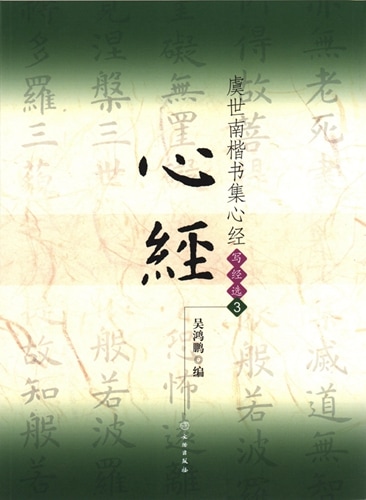 虞世南楷书集心经
写经选3
心經
吴鸿鹏 编
文物出版社
亦無老死
滅道無
得故菩提
般若
礙無罣
恐怖
涅槃三世
般若波羅
多羅三
故知般若